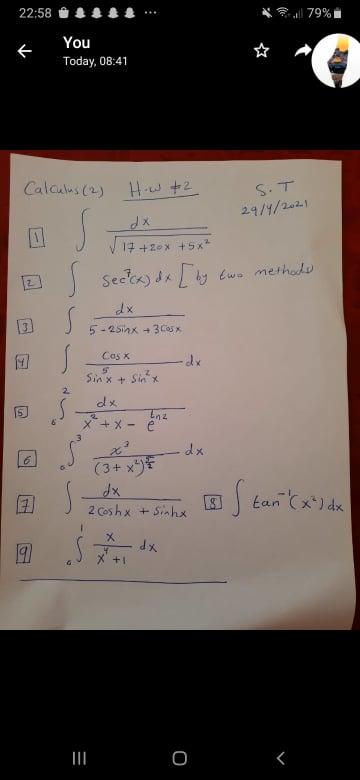 22:58 79%
You
Today, 08:41
Calculus(2) H.w #2 S.T
29/4/2021
1 ∫ dx / √(17 + 20x + 5x²)
2 ∫ Sec⁷(x) dx [by two methods
3 ∫ dx / (5 - 2sinx + 3cosx)
4 ∫ Cosx / (Sin⁵x + Sin²x) dx
5 ₀∫² dx / (x² + x - e^(ln2))
6 ₀∫³ x³ / (3 + x²)^(5/2) dx
7 ∫ dx / (2coshx + sinhx) 8 ∫ tan⁻¹(x²) dx
9 ₀∫¹ x / (x⁴ + 1) dx